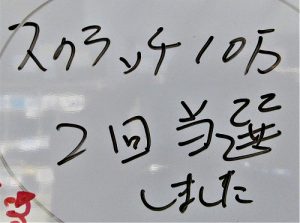 スクラッチ10万
2回当選
しました